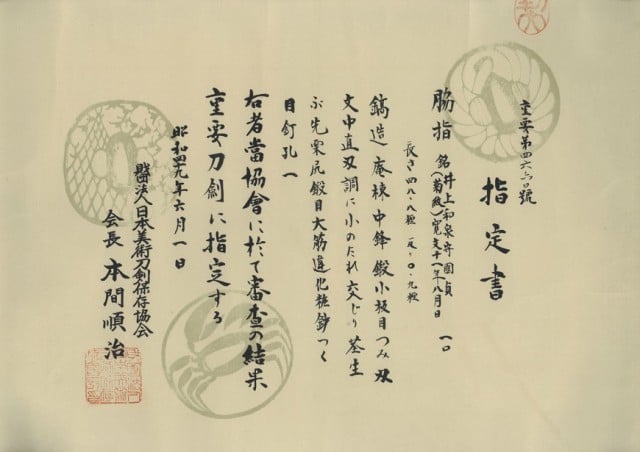 重要第四六六号
指定書
脇指 銘 井上和泉守国貞 一口
(菊紋)寛文十一年八月日
長さ四八・八糎 反り一・〇九糎
鎬造 庵棟 中鋒 鍛小板目つみ 刃
文中直刃調に小のたれ交じり 茎生
ぶ先栗尻鑢目大筋違化粧鑢つく
目釘孔一
右者當協會に於て審査の結果
重要刀劍に指定する
昭和四九年六月一日
財団法人日本美術刀剣保存協会
会長 本間順治